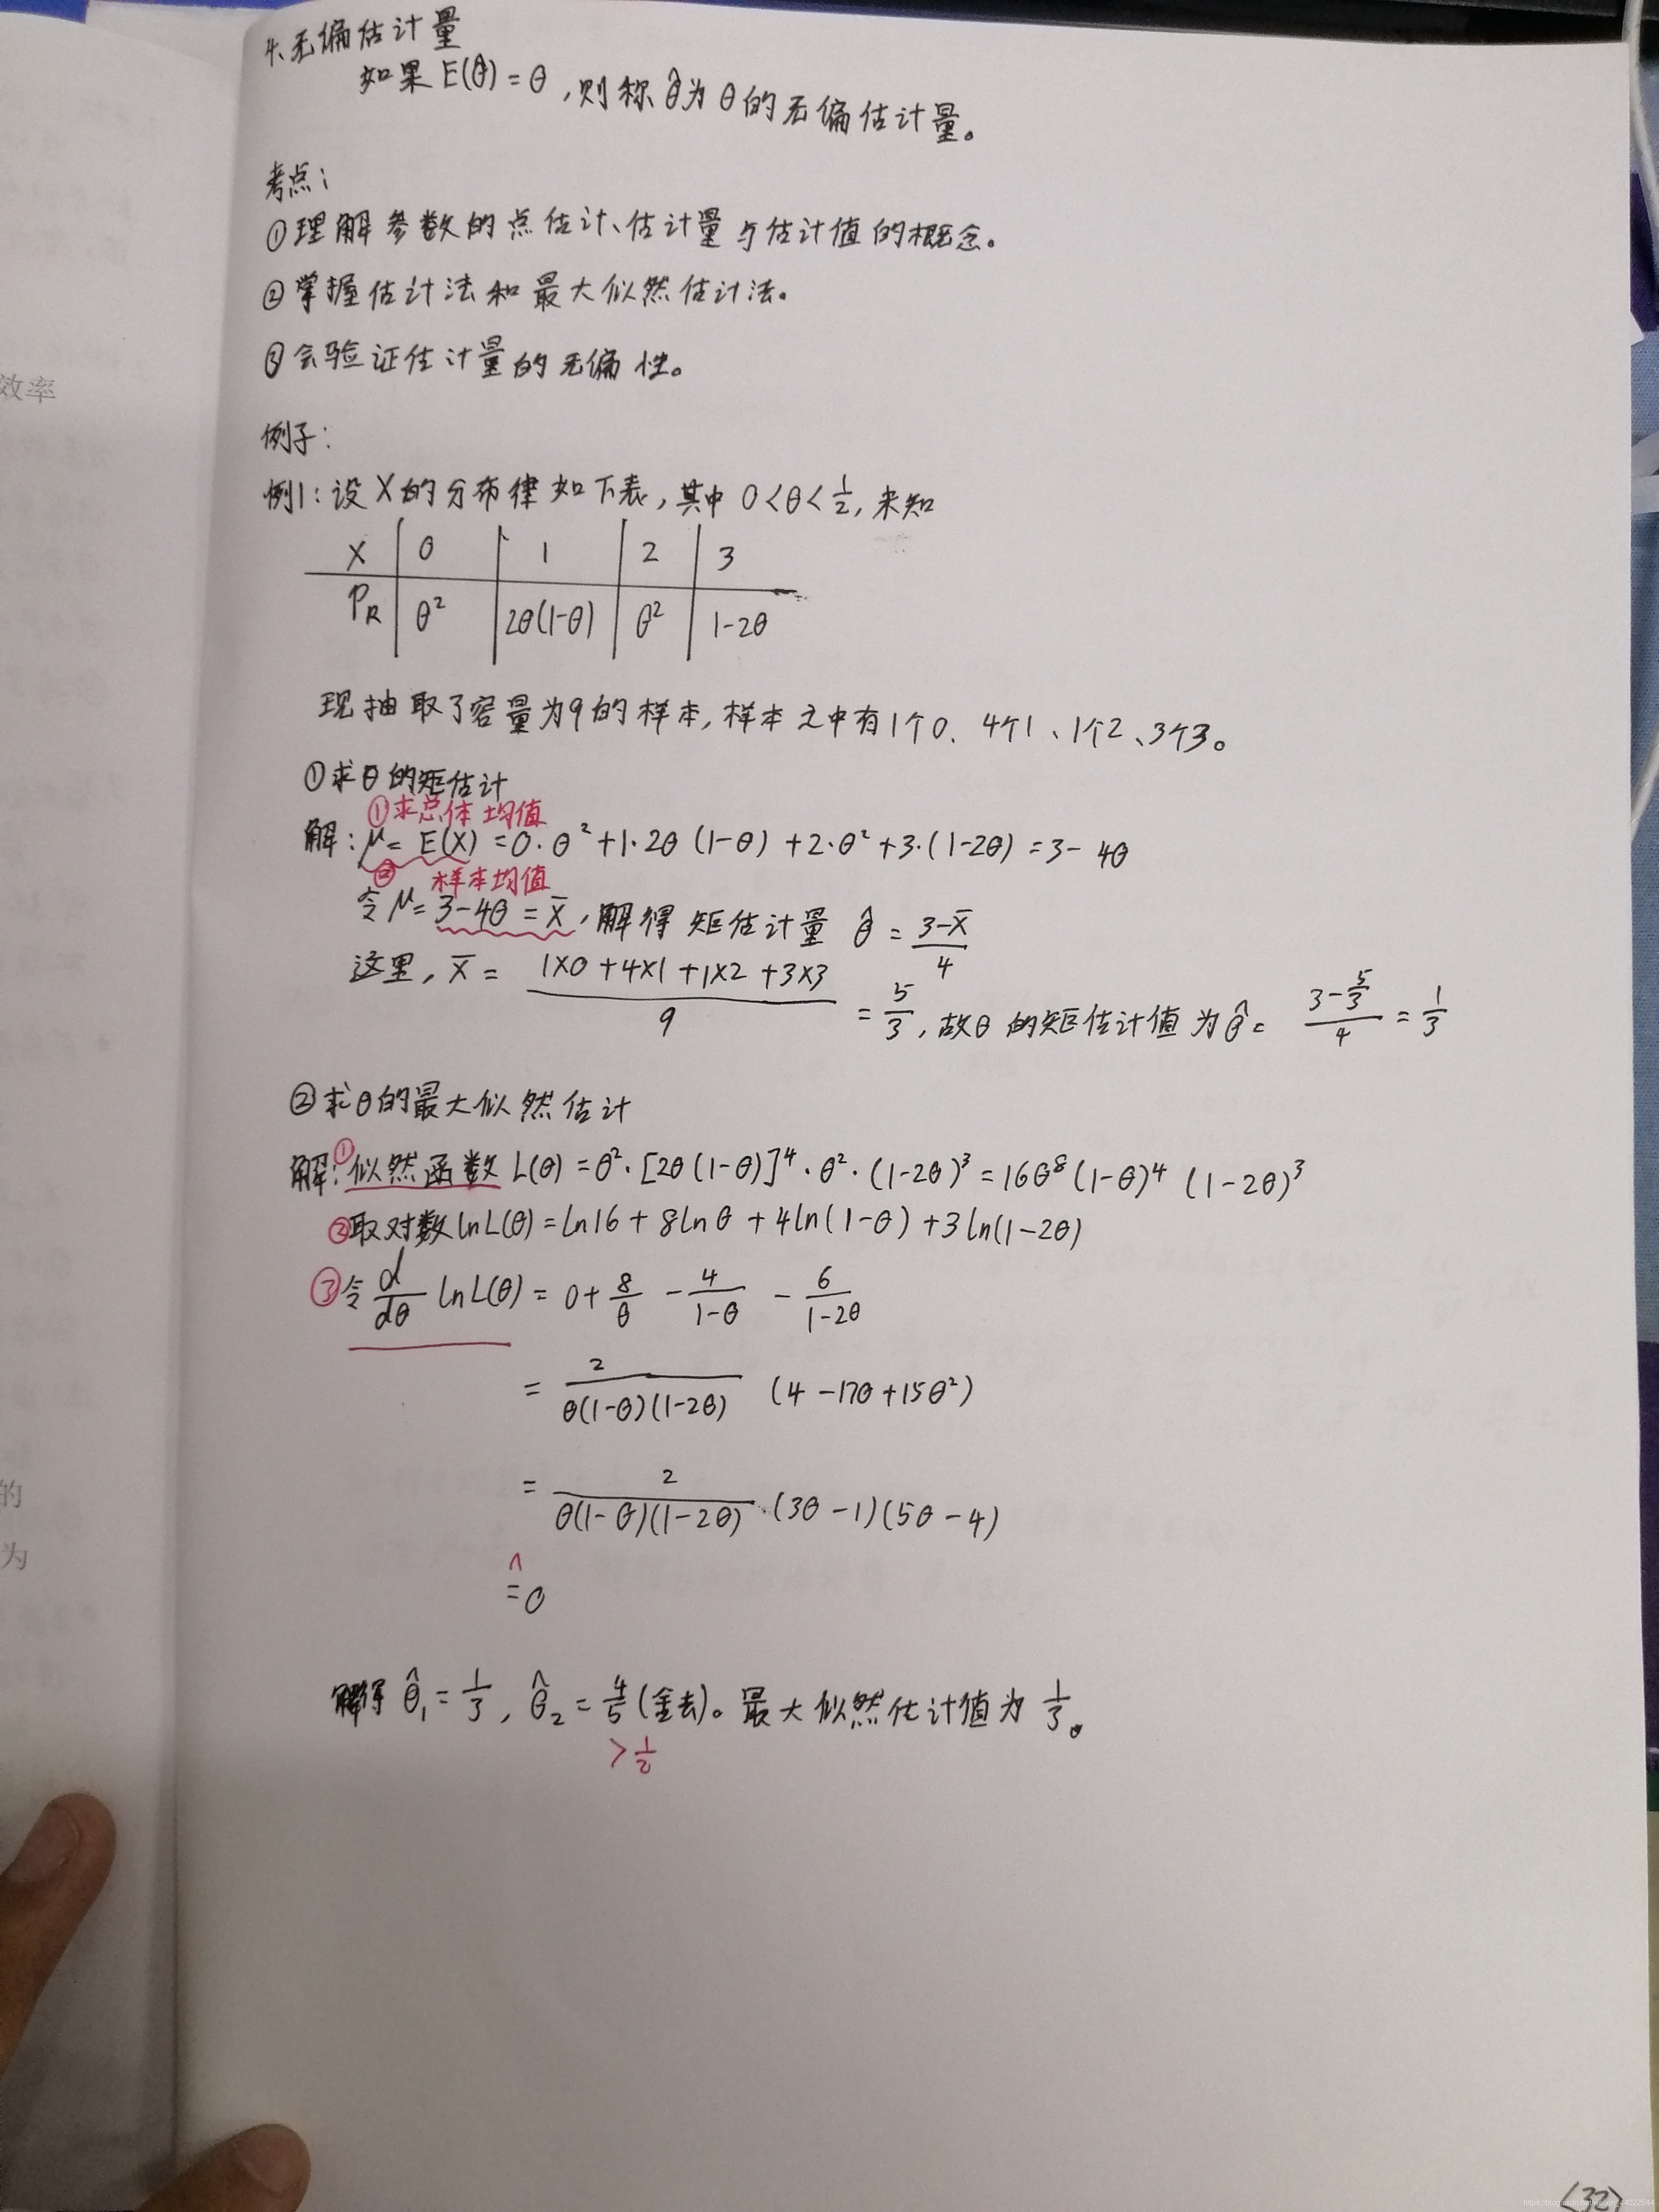 4、无偏估计量
如果 E(θ̂) = θ ,则称 θ̂ 为 θ 的无偏估计量。
考点:
①理解参数的点估计、估计量与估计值的概念。
②掌握估计法和最大似然估计法。
③会验证估计量的无偏性。
效率
例子:
例1:设 X 的分布律如下表,其中 0<θ<1/2, 未知
X | 0 | 1 | 2 | 3
Pk | θ² | 2θ(1-θ) | θ² | 1-2θ
现抽取了容量为9的样本,样本之中有1个0、4个1、1个2、3个3。
①求θ的矩估计
①求总体均值
解: μ = E(X) = 0·θ² + 1·2θ(1-θ) + 2·θ² + 3·(1-2θ) = 3-4θ
② 样本均值
令 μ = 3-4θ = x̄, 解得 矩估计量 θ̂ = (3-x̄)/4
这里, x̄ = (1×0+4×1+1×2+3×3)/9 = 5/3, 故θ的矩估计值为 θ̂ = (3-5/3)/4 = 1/3
②求θ的最大似然估计
解: ①似然函数 L(θ) = θ²·[2θ(1-θ)]⁴·θ²·(1-2θ)³ = 16θ⁸(1-θ)⁴(1-2θ)³
②取对数 lnL(θ) = ln16 + 8lnθ + 4ln(1-θ) + 3ln(1-2θ)
③令 d/dθ lnL(θ) = 0 + 8/θ - 4/(1-θ) - 6/(1-2θ)
= 2/(θ(1-θ)(1-2θ)) (4-17θ+15θ²)
= 2/(θ(1-θ)(1-2θ)) ·(3θ-1)(5θ-4)
的
为
≙ 0
解得 θ̂₁ = 1/3, θ̂₂ = 4/5 (舍去)。最大似然估计值为 1/3。
> 1/2
(32)